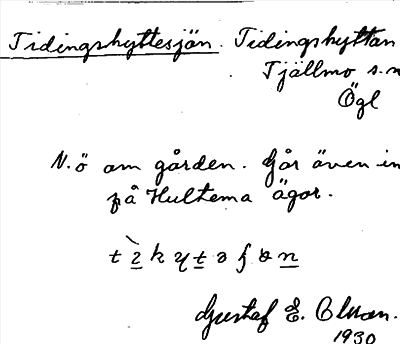 Tidingshyttesjön. Tidingshyttan
Tjällmo s:n
Ögl
N.ö om gården. Går även in
på Hultema ägor.
Gustaf E. Olsson.
1930